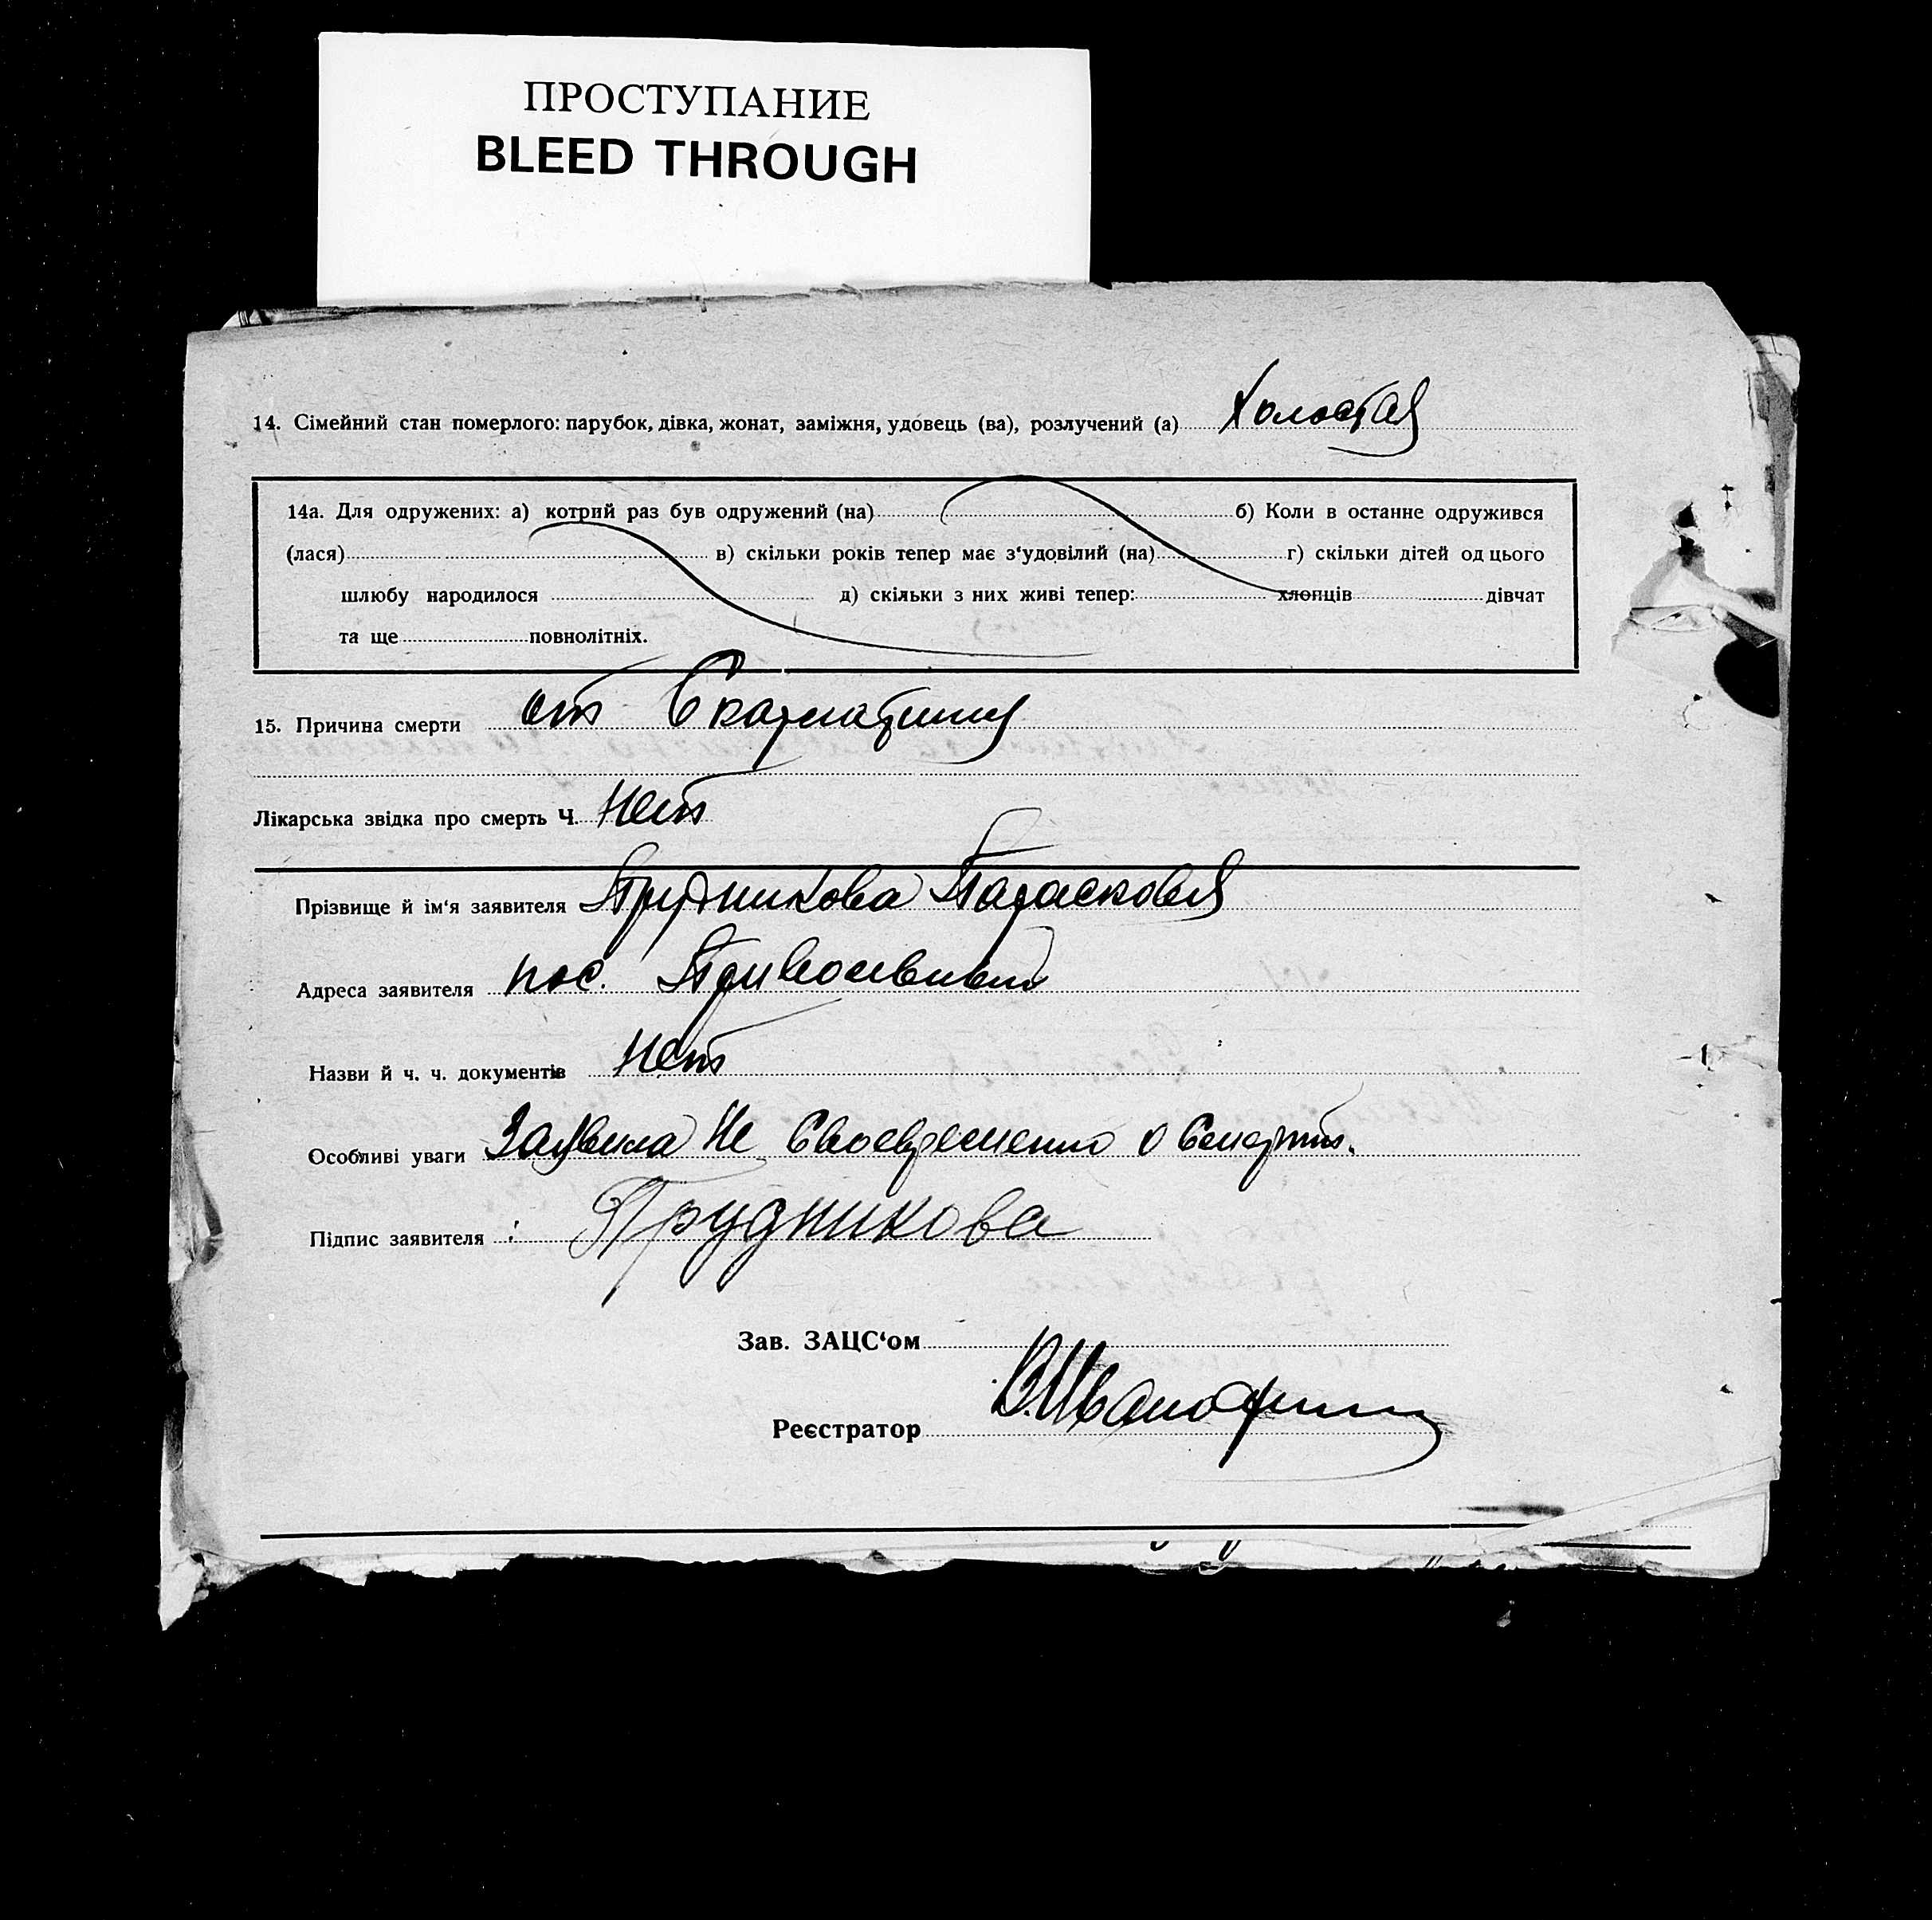 ПРОСТУПАНИЕ
BLEED THROUGH
14. Сімейний стан померлого: парубок, дівка, жонат, заміжня, удовець (ва), розлучений (а) Холостая
14а. Для одружених: а) котрий раз був одружений (на) б) Коли в останне одружився
(лася) в) скільки років тепер має з‘удовілий (на) г) скільки дітей од цього
шлюбу народилося д) скільки з них живі тепер: хлопців дівчат
та ще повнолітніх.
15. Причина смерти от Скарлатины
Лікарська звідка про смерть Ч. Нет
Прізвище й ім‘я заявителя Прудникова Парасковья
Адреса заявителя пос.
Назви й ч. ч. документів Нет
Особливі уваги Заявила Не Своевременно о Смерти.
Підпис заявителя Прудникова
Зав. ЗАЦС‘ом
Реєстратор